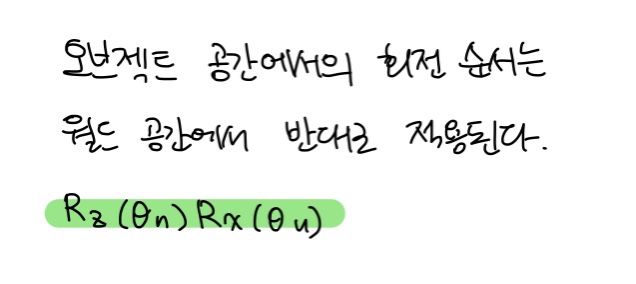 오브젝트 공간에서의 회전 순서는
월드 공간에서 반대로 적용된다.
Rz(θn)Rx(θu)